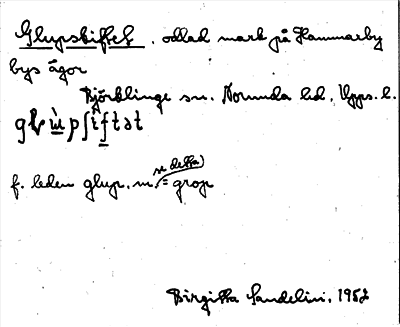 Glupskiftet. odlad mark på Hammarby
bys ägor
Björklinge sn. Norunda hd. Upps. l.
f. leden glup, m. = grop
se detta)
Birgitta Sandelin, 1952